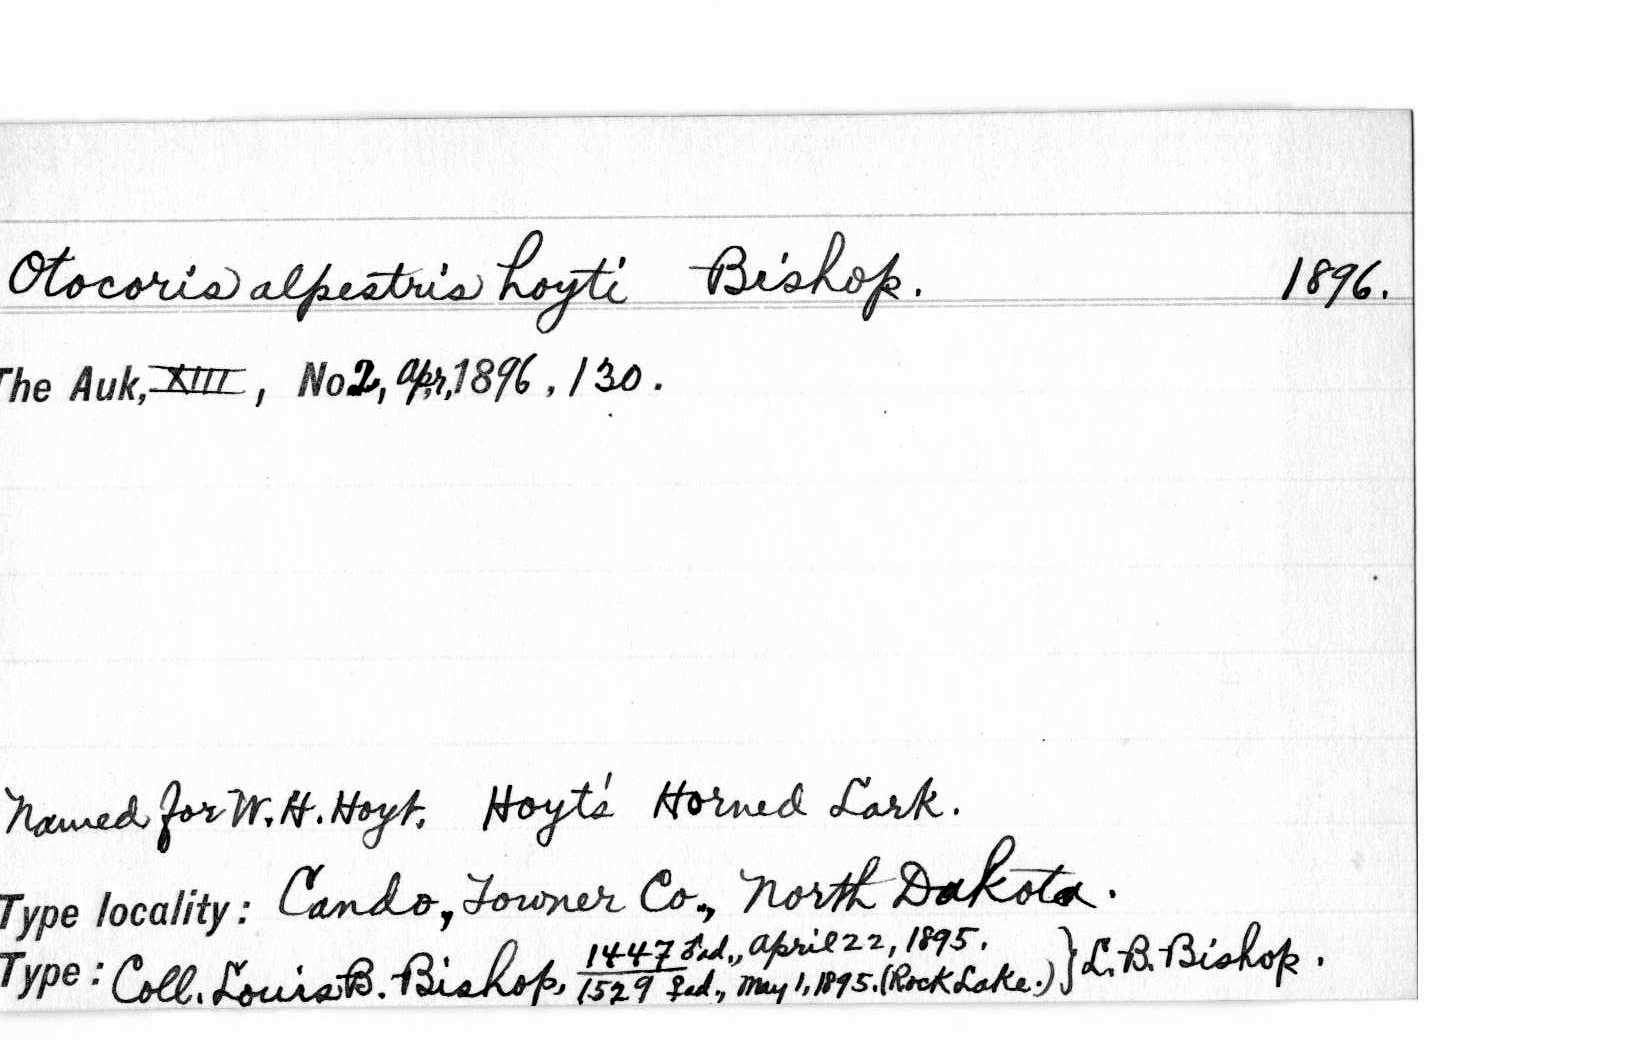 Otocoris alpestris hoyti Bishop. 1896.
The Auk, XIII, No 2, Apr., 1896, 130.
Named for W. H. Hoyt. Hoyt's Horned Lark.
Type locality: Cando, Towner Co., North Dakota.
Type: Coll. Louis B. Bishop, 1447 ♂ad., April 22, 1895.
1529 ♀ad., May 1, 1895. (Rock Lake.) } L. B. Bishop.